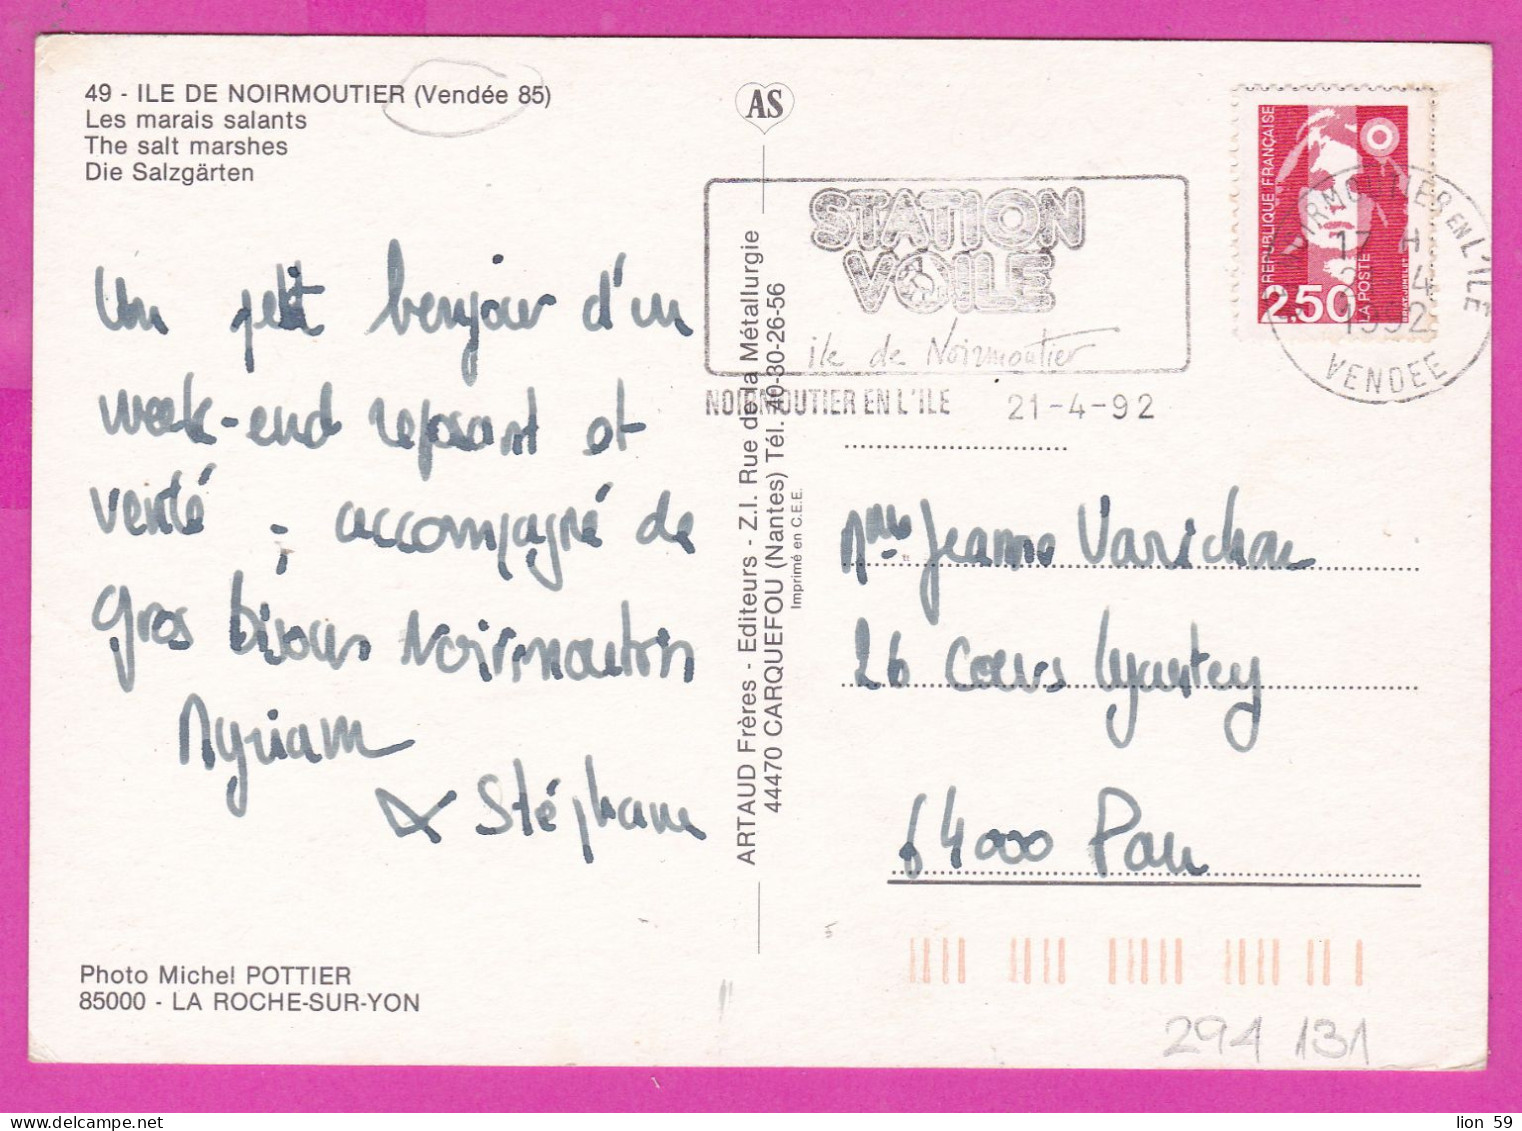 49 - ILE DE NOIRMOUTIER (Vendée 85)
Les marais salants
The salt marshes
Die Salzgärten
Un petit bonjour d'un
week-end reposant et
venté - accompagné de
gros bisous Noirmoutrins
Myriam
& Stéphane
Photo Michel POTTIER
85000 - LA ROCHE-SUR-YON
AS
ARTAUD Frères - Editeurs - Z.I. Rue de la Métallurgie
44470 CARQUEFOU (Nantes) Tél. 40-30-26-56
Imprimé en C.E.E.
STATION
VOILE
île de Noirmoutier
NOIRMOUTIER EN L'ILE 21-4-92
REPUBLIQUE FRANÇAISE
2,50
LA POSTE
NOIRMOUTIER EN L'ILE
17 H
4
1992
VENDEE
Mme Jeanne
26 Cours Lyautey
64000 Pau
294 131
lion 59